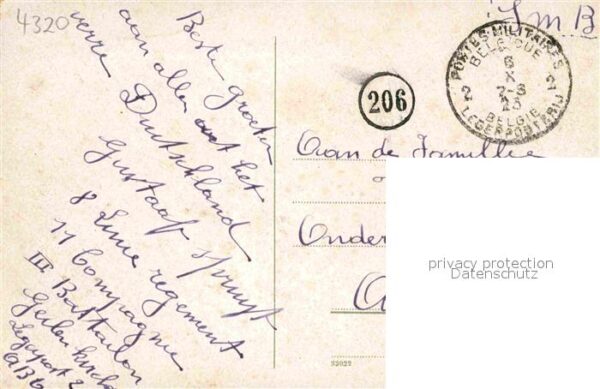 4320
Beste groeten
aan allen uit het
verre Duitschland
Gustaaf Spruyt
8 Linie regement
11 Compagnie
III Bataillon
Geilenkirchen
Legerpost 2
S.M.B
POSTES MILITAIRES
BELGIQUE
6
X
7-8
23
2 2
BELGIE
LEGERPOSTERIJ
206
Aan de Famillie
Onder
privacy protection
Datenschutz